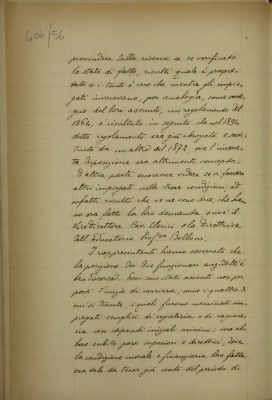 G06/56
provvidero dalla riserva se si verificasse
lo stato di fatto, risulta quale è prospet-
tato se: tanto è vero che mentre gli impie-
gati invocavano, per analogia, come soste-
gno del loro assunto, un regolamento del
1864, è risultato in seguito che nel 1894
detto regolamento era già abrogato e sosti-
tuito da un altro del 1872, ove l'invoca-
ta disposizione era altrimenti concepita.
D'altra parte conviene vedere se vi fossero
altri impiegati nelle stesse condizioni, ed
infatti risulta che ve ne sono due, che han-
no ora fatta la loro domanda, cioè: il
Vicedirettore Cav. Clerici e la Direttrice
dell'Educatorio Prof.ssa Belloni.
I rappresentanti hanno osservato che
la posizione dei due funzionari
ben diversa. Essi non stati assunti non per
posti d'inizio di carriera, come i quattro di
cui si tratta, i quali furono nominati im-
piegati semplici di segreteria e di ragione-
ria con stipendi iniziali minimi; ma eb-
bero subito posti superiori e direttivi, dove
la condizione morale e finanziaria loro fatta
era tale da tener già conto del periodo di